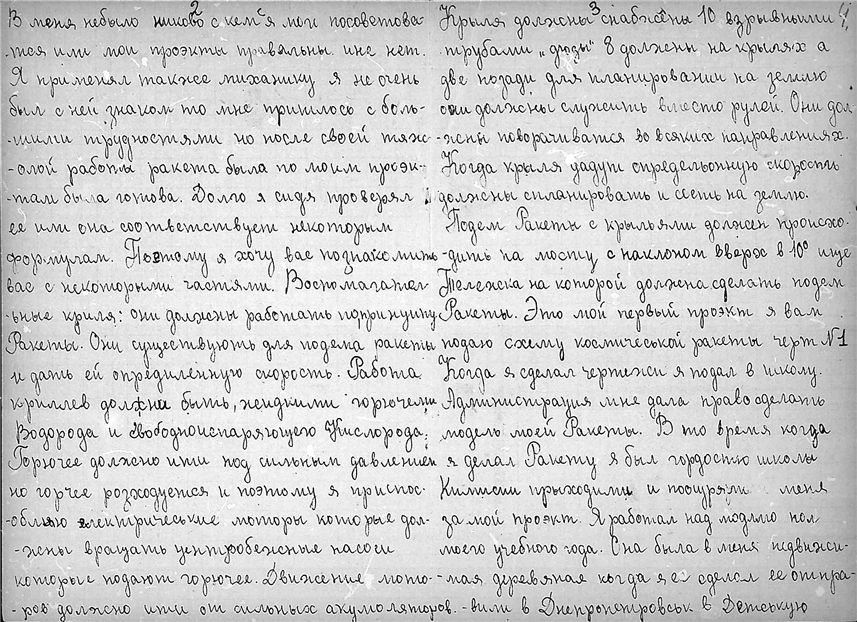 2
В меня небыло никово с кем я мог посоветова-
-тся или мои проэкты правельны ине нет.
Я применял также миханику я не очень
был с ней знаком то мне пришлось с боль-
-шими трудностями но после своей тяж-
-олой работы ракета была по моим проэк-
-там была готова. Долго я сидя проверял
ее или она соответствует некоторым
формулам. Поэтому я хочу вас познакомить
вас с некоторыми частями. Воспомагател-
-ьные криля: они должны работать по принципу
Ракеты. Они существують для подема ракеты
и дать ей определённую скорость. Работа
криллев должни быть, жидкими горючеми
Водорода и Свободноиспаряющего Кислорода;
Горючее должно ити под сильным давлением
но горчее розходуется и поэтому я приспос-
-облюю електрические моторы которые дол-
-жны вращать центробежные насоси
которые подают горючее. Движение мото-
-ров должно ити от сильных акумоляторов.
3
4
Крыля должны снабжены 10 взрывными
трубами „дюзы" 8 должны на крылях а
две позади для планировании на землю
они должны служить вместо рулей. Они дол-
-жны поворачиватся во всяких направлениях.
Когда крыля дадут определьонную скорость
должны спланировать и сесть на землю.
Подем Ракеты с крыльями должен происхо-
-дить па мосту с наклоном вверх в 10° ище
Тележка на которой должна сделать подем
Ракеты. Это мой первый проэкт я вам
подаю схему космической ракеты черт №1
Когда я сделал чертежи я подал в школу.
Администрация мне дала право сделать
модель моей Ракеты. В то время когда
я делал Ракету я был гордостю школы
Кимиси прыходили и посщряли меня
за мой проэкт. Я работал над модлю пол-
моего учебного года. Она была в меня недвижи-
-мая деревяная когда я ее сделал ее отпра-
-вили в Днепропетровськ в Детськую